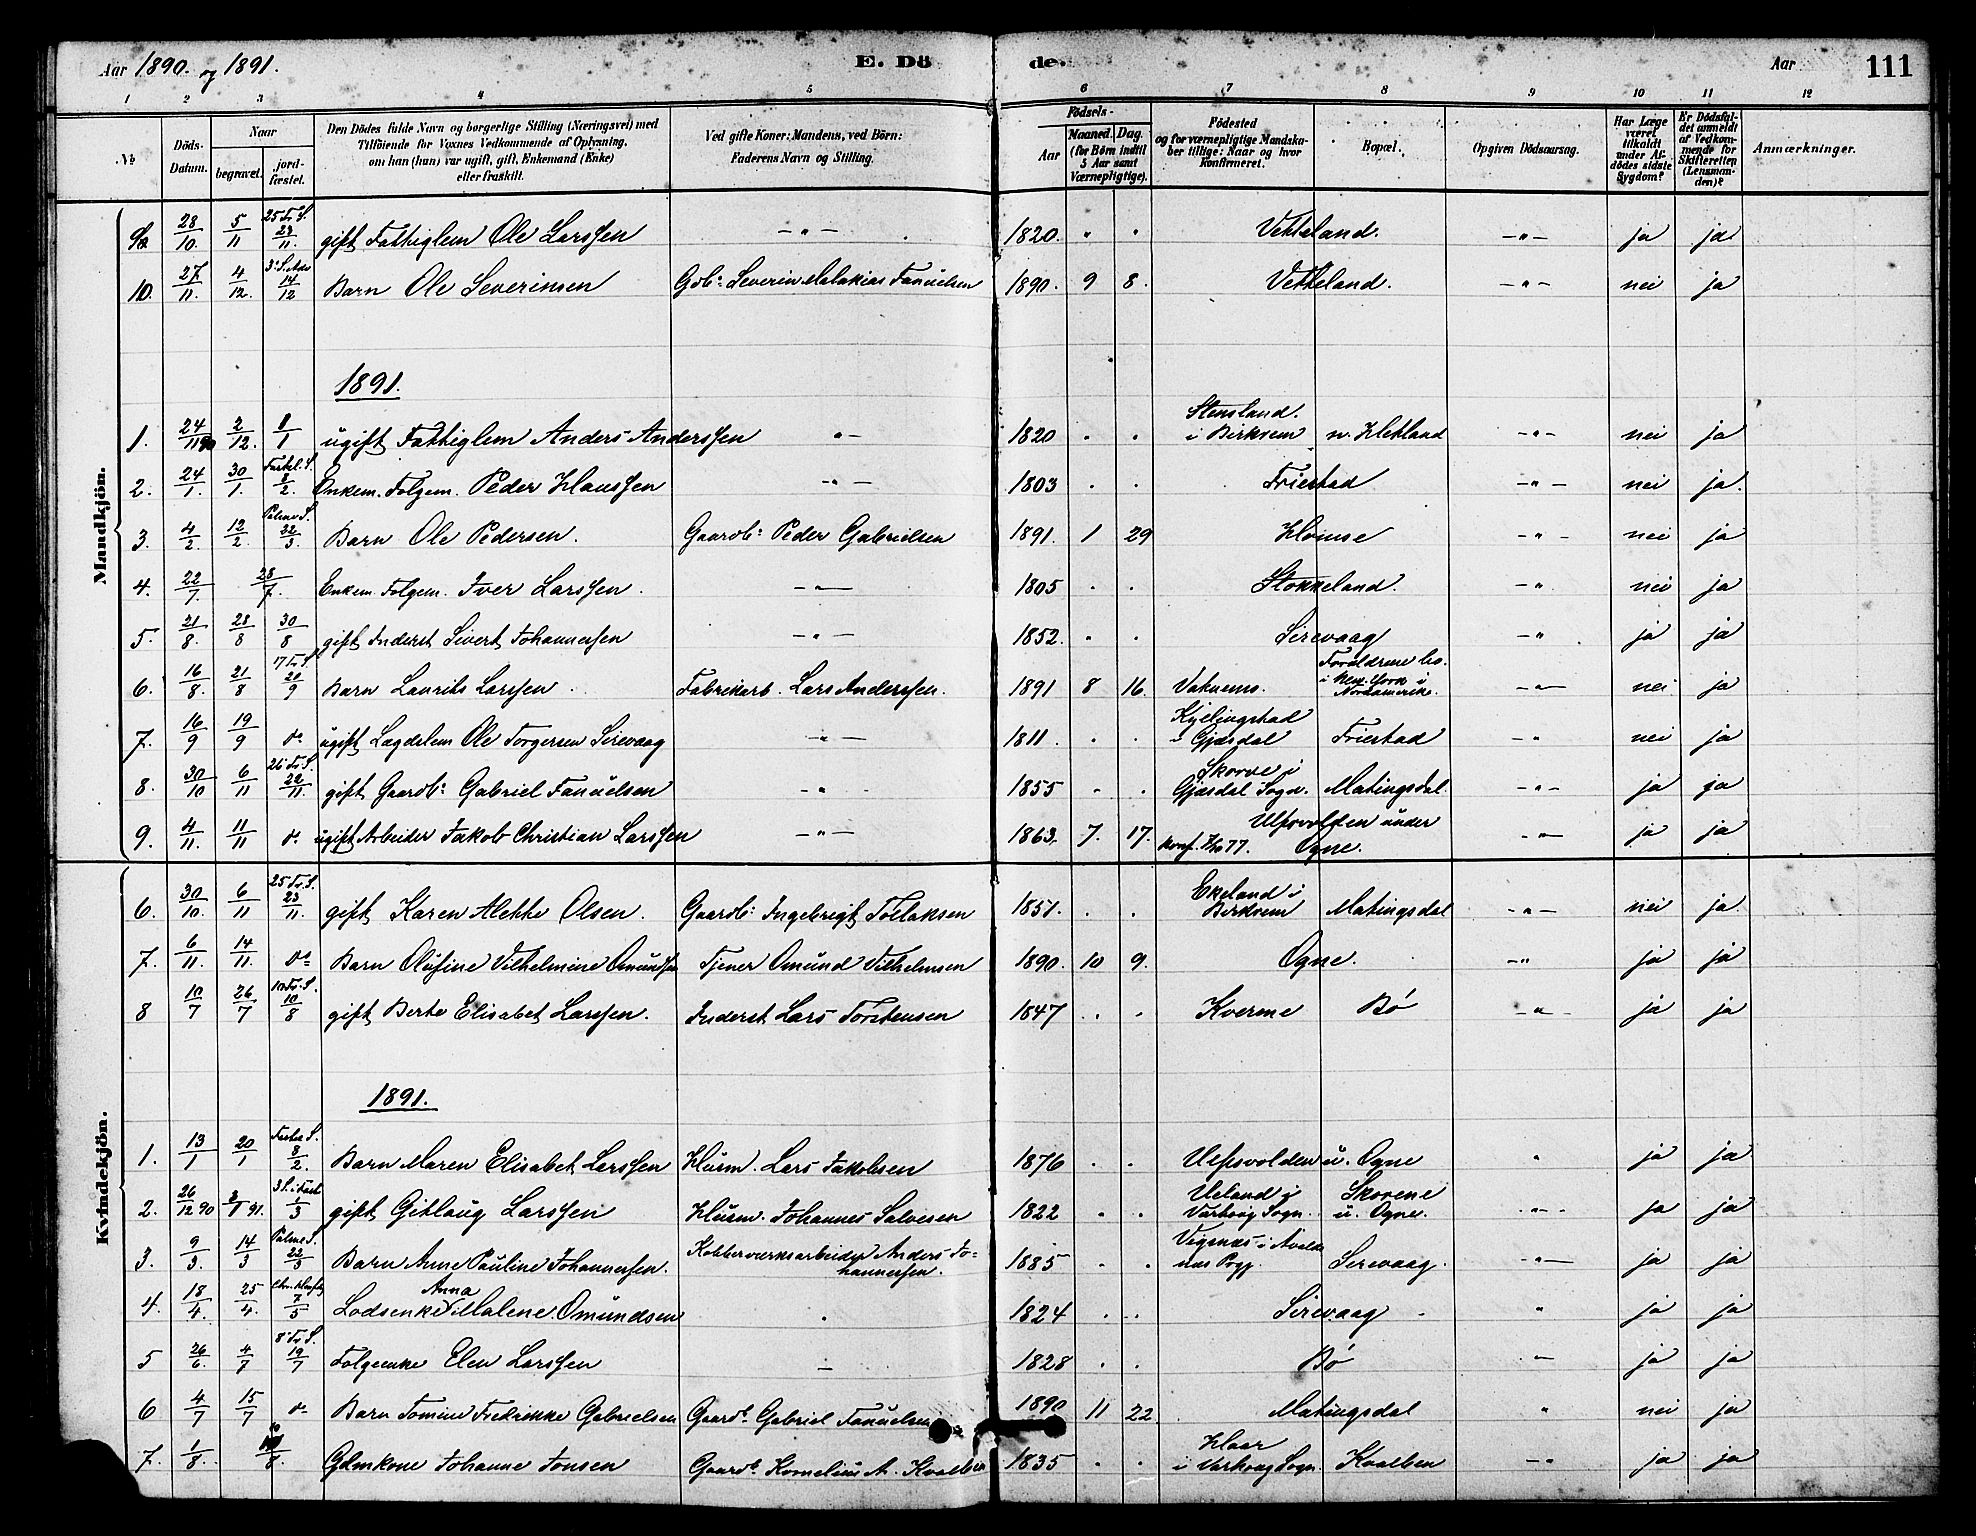 Aar 1890 og 1891. E. Dö de. Aar 111
1 2 3 4 5 6 7 8 9 10 11 12
No Döds-Datum. Naar begravet. jord-fæstet. Den Dödes fulde Navn og borgerlige Stilling (Næringsvei) med Tilföiende for Voxnes Vedkommende af Oplysning, om han (hun) var ugift, gift, Enkemand (Enke) eller fraskilt. Ved gifte Koner: Mandens, ved Börn: Faderens Navn og Stilling. Födsels- Aar Maaned. Dag. (for Börn indtil 5 Aar samt Værnepligtige). Födested og for værnepligtige Mandskaber tillige: Naar og hvor konfirmeret. Bopæl. Opgiven Dödsaarsag. Har Læge været tilkaldt under Afdödes sidste Sygdom? Er Dödsfaldet anmeldt af Vedkommende for Skifteretten (Lensmanden)? Anmærkninger.
Mandkjön.
9. 28/10. 5/11 25 Tr. S. 23/11. gift Fattiglem Ole Larssen -"- 1820. " " Vetteland. -"- ja ja
10. 27/11. 4/12. 14/12 Barn Ole Severinsen Gdb: Severin Malakias Fanuelsen 1890. 9 8. Vetteland. -"- nei ja
1891.
1. 24/11 90 2/12. 8/1 ugift Fattiglem Anders Anderssen "- 1820 . . Stensland i Birkrem n. Hetland -"- nei ja
2. 24/1. 30/1. Fastel. S. 8/2. Enkem. Folgem. Peder Klaussen -"- 1803 . . Friestad -"- nei ja.
3. 4/2. 12/2. Palme S. 22/3. Barn Ole Pedersen. Gaardb: Peder Gabrielsen 1891. 1 29 Homse -"- nei ja
4. 22/7. 28/7. Enkem. Folgem. Iver Larssen. -"- 1805 . . Stokkeland. -" nei ja
5. 21/8. 28/8 30/8 gift Inderst Sivert Johannessen -"- 1852. . . Sirevaag -" ja ja
6. 16/8. 21/8 17 Tr. S. 20/9 Barn Laurits Larssen. Fabrikarb. Lars Anderssen. 1891 8 16. Foraldrene bo. i New York i Nordamerika. -"- nei ja
7. 16/9 19/9 do ugift Lægdslem Ole Torgersen Sirevaag -"- 1811. . . Kyelingstad i Gjesdal Friestad -" nei ja
8. 30/10 6/11 26 Tr. S. 22/11. gift Gaardb: Gabriel Fanuelsen -"- 1855 . . Skorve i Gjesdal Sogn. Matingsdal. -"- ja ja
9. 4/11. 11/11 do ugift Arbeider Jakob Christian Larssen -"- 1863. 7. 17. Ulfsvolden under Ogne. konf. 7/10 77. -"- ja ja
Kvindekjön.
6. 30/10. 6/11 25 Tr. S. 23/11. gift Karen Alette Olsen. Gaardb: Ingebrigt Tollaksen 1857. . . Ekeland i Birkrem Matingsdal -"- nei ja.
7. 6/11. 14/11. do Barn Olufine Vilhelmine Omundsen Tjener Omund Vilhelmsen 1890. 10 9. Ogne. -"- ja ja
8 10/7 26/7 10 Tr. S. 10/8 gift Berte Elisabet Larssen. Inderst Lars Torstensen 1847 . . Kverme Bö -"- ja ja
1891.
1. 13/1 20/1 Fastel. S. 8/2. Barn Maren Elisabet Larssen Husm. Lars Jakobsen 1876 . . Ulfsvolden u. Ogne " ja ja
2. 26/12 90 3/1 91. 3 S. i Fast 1/3 gift Gitlaug Larssen Husm. Johannes Salvesen 1822 . . Ueland i Varhoug Sogn. Skorene u. Ogne. -"- ja ja
3. 9/3. 14/3 Palme S. 22/3 Barn Anne Pauline Johannessen. Kobberværksarbeider Anders Johannessen. 1885 . . Vigsnæs i Avaldsnes Prgj. Sirevaag. -"- ja ja
4. 18/4. 25/4. 7/5 Lodsenke Anna Malene Omundsen . 1824 . . Sirevaag " ja ja
5 26/6. 4/7 8 Tr. S. 19/7 Folgeenke Elen Larssen - 1828 . . Bö - ja ja
6 4/7 15/7 do Barn Tomine Fredrikke Gabrielsen Gaardb. Gabriel Fanuelsen 1890 11 22 Matingsdal " nei ja
7. 1/8. Gdmkone Johanne Jonsen Gaardb. Kornelius A. Kvalben 1835 . . Haar i Varhoug Sogn. Kvalben -"- ja ja